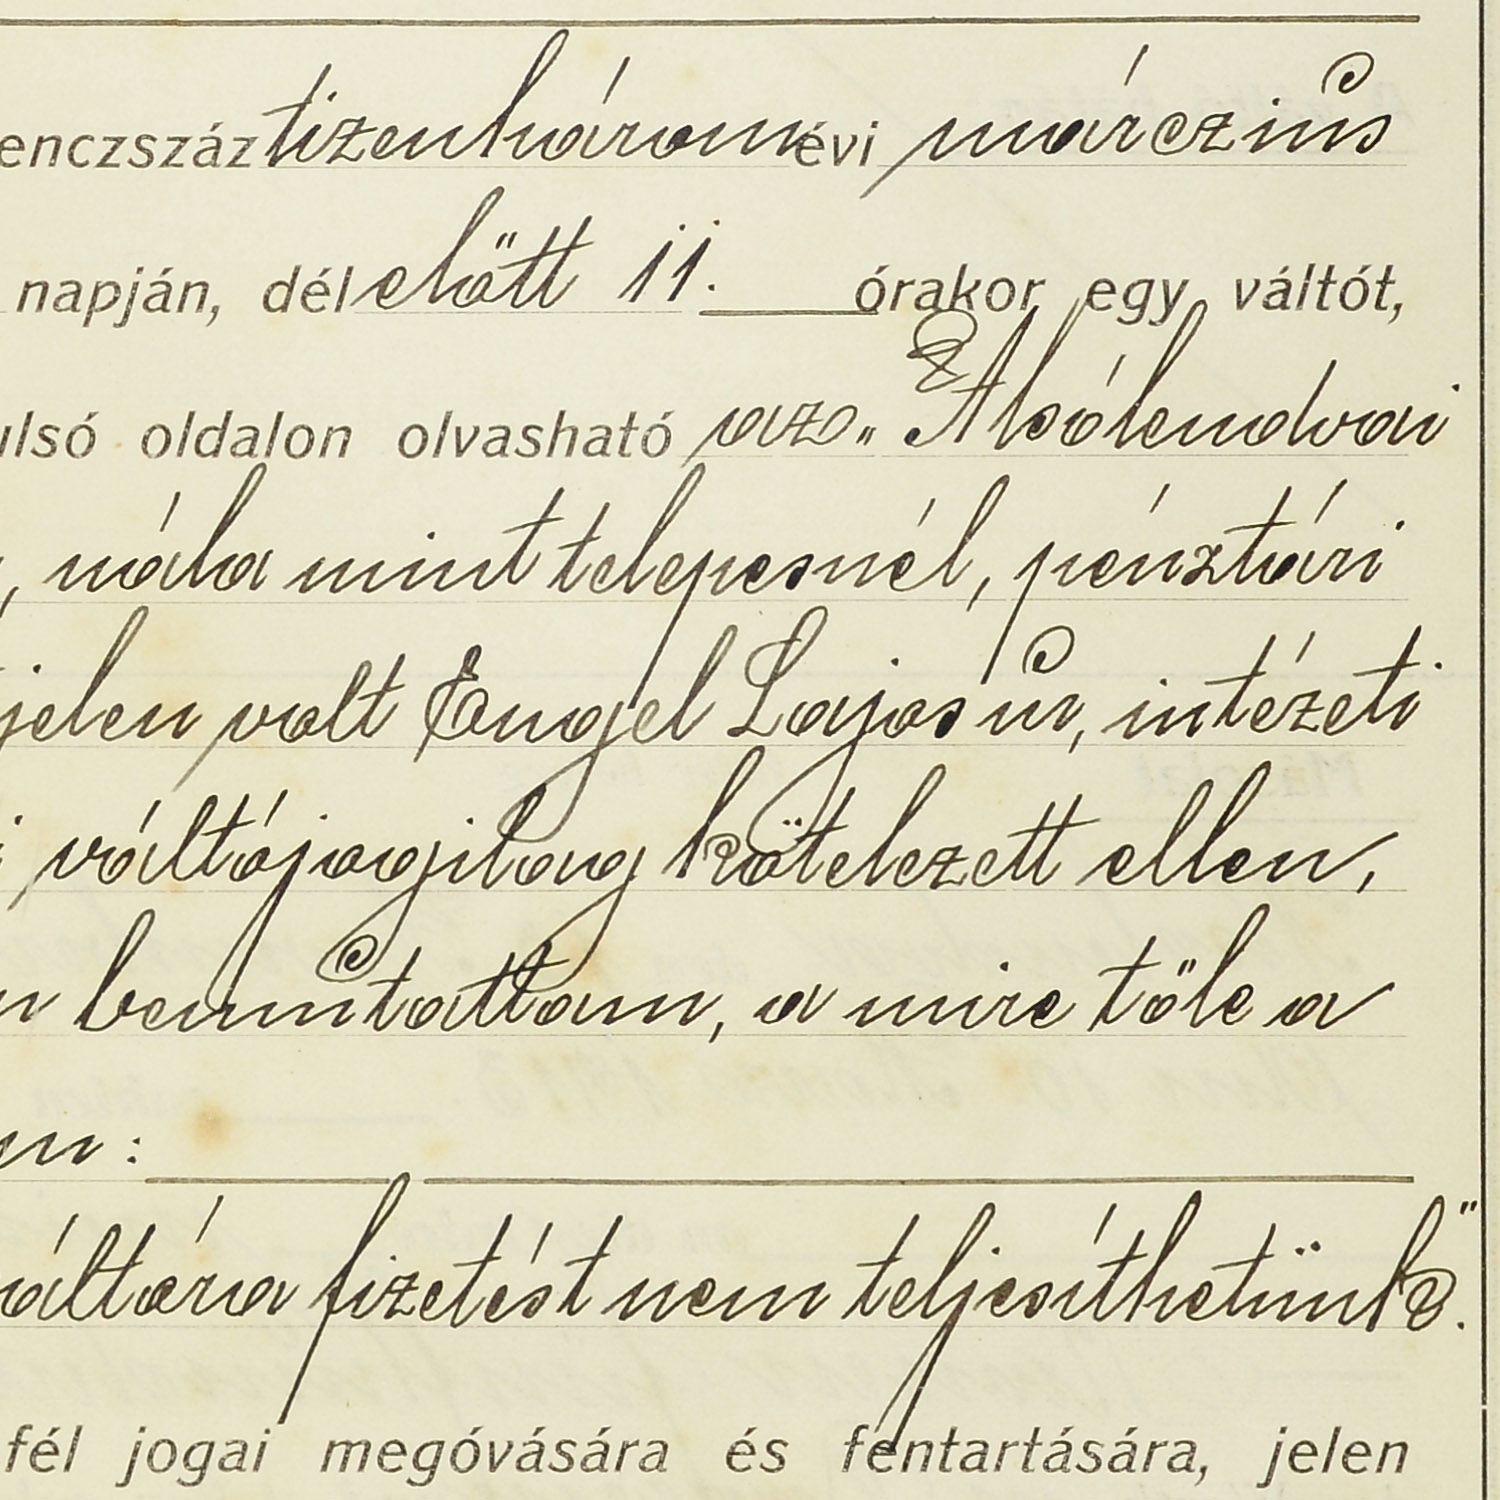 enczszáz tizenhárom évi márczius
napján, délelőtt 11. órakor egy váltót,
ulsó oldalon olvasható az „Alsólendvai
, nála mint telepesnél, pénztári
jelen volt Engel Lajos úr, intézeti
i váltójogilag kötelezett ellen,
n bemútattam, a mire tőle a
:
áltóra fizetést nem teljesíthetünk".
fél jogai megóvására és fentartására, jelen